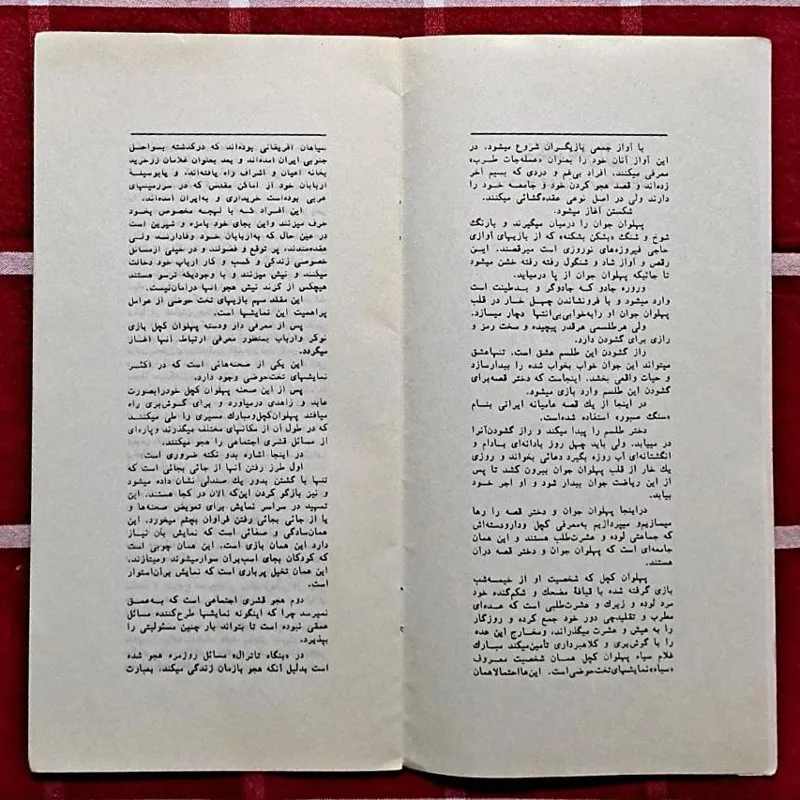 با آواز جمعی بازیگران شروع میشود. در
این آواز آنان خود را بعنوان «عمله‌جات طرب»
معرفی میکنند. افراد بی‌غم و دردی که بسیم آخر
زده‌اند و قصد هجو کردن خود و جامعه خود را
دارند ولی در اصل نوعی عقده‌گشائی میکنند.
شکستن آغاز میشود.
پهلوان جوان را درمیان میگیرند و بارنگ
شوخ و شنگ «بشکن بشکنه» که از بازیهای آوازی
حاجی فیروزه‌های نوروزی است میرقصند. این
رقص و آواز شاد و شنگول رفته رفته خشن میشود
تا جائیکه پهلوان جوان از پا درمیاید.
وروره جادو که جادوگر و بدطینت است
وارد میشود و با فرونشاندن چهل خار در قلب
پهلوان جوان او رابه‌خوابی‌بی‌انتها دچار میسازد.
ولی هرطلسمی هرقدر پیچیده و سخت رمز و
رازی برای گشودن دارد.
راز گشودن این طلسم عشق است. تنهاعشق
میتواند این جوان خواب بخواب شده را بیدارسازد
و حیات واقعی بخشد. اینجاست که دختر قصه‌برای
گشودن این طلسم وارد بازی میشود.
در اینجا از یك قصه عامیانه ایرانی بنام
«سنگ صبور» استفاده شده‌است.
دختر طلسم را پیدا میکند و راز گشودن‌آنرا
در مییابد. ولی باید چهل روز بادانه‌ای بادام و
انگشتانه‌ای آب روزه بگیرد دعائی بخواند و روزی
یك خار از قلب پهلوان جوان بیرون کشد تا پس
از این ریاضت جوان بیدار شود و او اجر خود
بیابد.
دراینجا پهلوان جوان و دختر قصه را رها
میسازیم‌و میپردازیم به‌معرفی کچل وداروده‌سته‌اش
که جماعتی لوده و عشرت‌طلب هستند و این همان
جامعه‌ای است که پهلوان جوان و دختر قصه درآن
هستند.
پهلوان کچل که شخصیت او از خیمه‌شب
بازی گرفته شده با قیافهٔ مضحك و شکم‌گنده خود
مرد لوده و زیرك و عشرت‌طلبی است که عده‌ای
مطرب و تقلیدچی دور خود جمع کرده و روزگار
را به عیش و عشرت میگذراند، ومخارج این عده
را با گوش‌بری و کلاهبرداری تأمین‌میکند مبارك
غلام سیاه پهلوان کچل همان شخصیت معروف
«سیاه» نمایشهای‌تخت‌حوضی‌است. این‌هااحتمالاهمان
سیاهان افریقائی بوده‌اند که درگذشته بسواحل
جنوبی ایران آمده‌اند و بعد بعنوان غلامان زرخرید
بخانه اعیان و اشراف راه یافته‌اند، و یابوسیلهٔ
اربابان خود از اماکن مقدس که در سرزمینهای
عربی بوده‌است خریداری و به‌ایران آمده‌اند.
این افراد سه با لهجه مخصوص بخود
حرف میزنند واین بجای خود بامزه و شیرین است
در عین حال که به‌اربابان خود وفادارند ولی
عقده‌مندند، پر توقع و فضولند و در خیلی ازمسائل
خصوصی زندگی و کسب و کار ارباب خود دخالت
میکنند و نیش میزنند و با وجودیکه ترسو هستند
هیچکس از گزند نیش هجو آنها درامان‌نیست.
این مقلد مهم بازیهای تخت حوضی از عوامل
پراهمیت این نمایشها است.
پس از معرفی دار ودسته پهلوان کچل بازی
نوکر وارباب بمنظور معرفی ارتباط آنها آغاز
میگردد.
این یکی از صحنه‌هائی است که در اکثر
نمایشهای تخت‌حوضی وجود دارد.
پس از این صحنه پهلوان کچل خودرابصورت
عابد و زاهدی درمیاورد و برای گوش‌بری راه
میافتد پهلوان‌کچل‌ومبارك مسیری را طی میکنند
که در طول آن از مکانهای مختلف میگذرند وپاره‌ای
از مسائل قشری اجتماعی را هجو میکنند.
در اینجا اشاره بدو نکته ضروری است:
اول طرز رفتن آنها از جائی بجائی است که
تنها با گشتن بدور یك صندلی نشان داده میشود
و نیز بازگو کردن این‌که الان در کجا هستند. این
تمهید در سراسر نمایش برای تعویض صحنه‌ها و
یا از جائی بجائی رفتن فراوان بچشم میخورد. این
همان‌سادگی و صفائی است که نمایش بآن نیاز
دارد این همان بازی است. این همان چوبی است
که کودکان بجای اسب‌برآن سوارمیشوند ومیتازند.
این همان تخیل پرباری است که نمایش برآن‌استوار
است.
دوم هجو قشری اجتماعی است که به‌عمق
نمیرسد چرا که اینگونه نمایشها طرح‌کننده مسائل
عمقی نبوده است تا بتواند بار چنین مسئولیتی را
بپذیرد.
در «بنگاه تاترال» مسائل روزمره هجو شده
است بدلیل آنکه هجو بازمان زندگی میکند، بعبارت